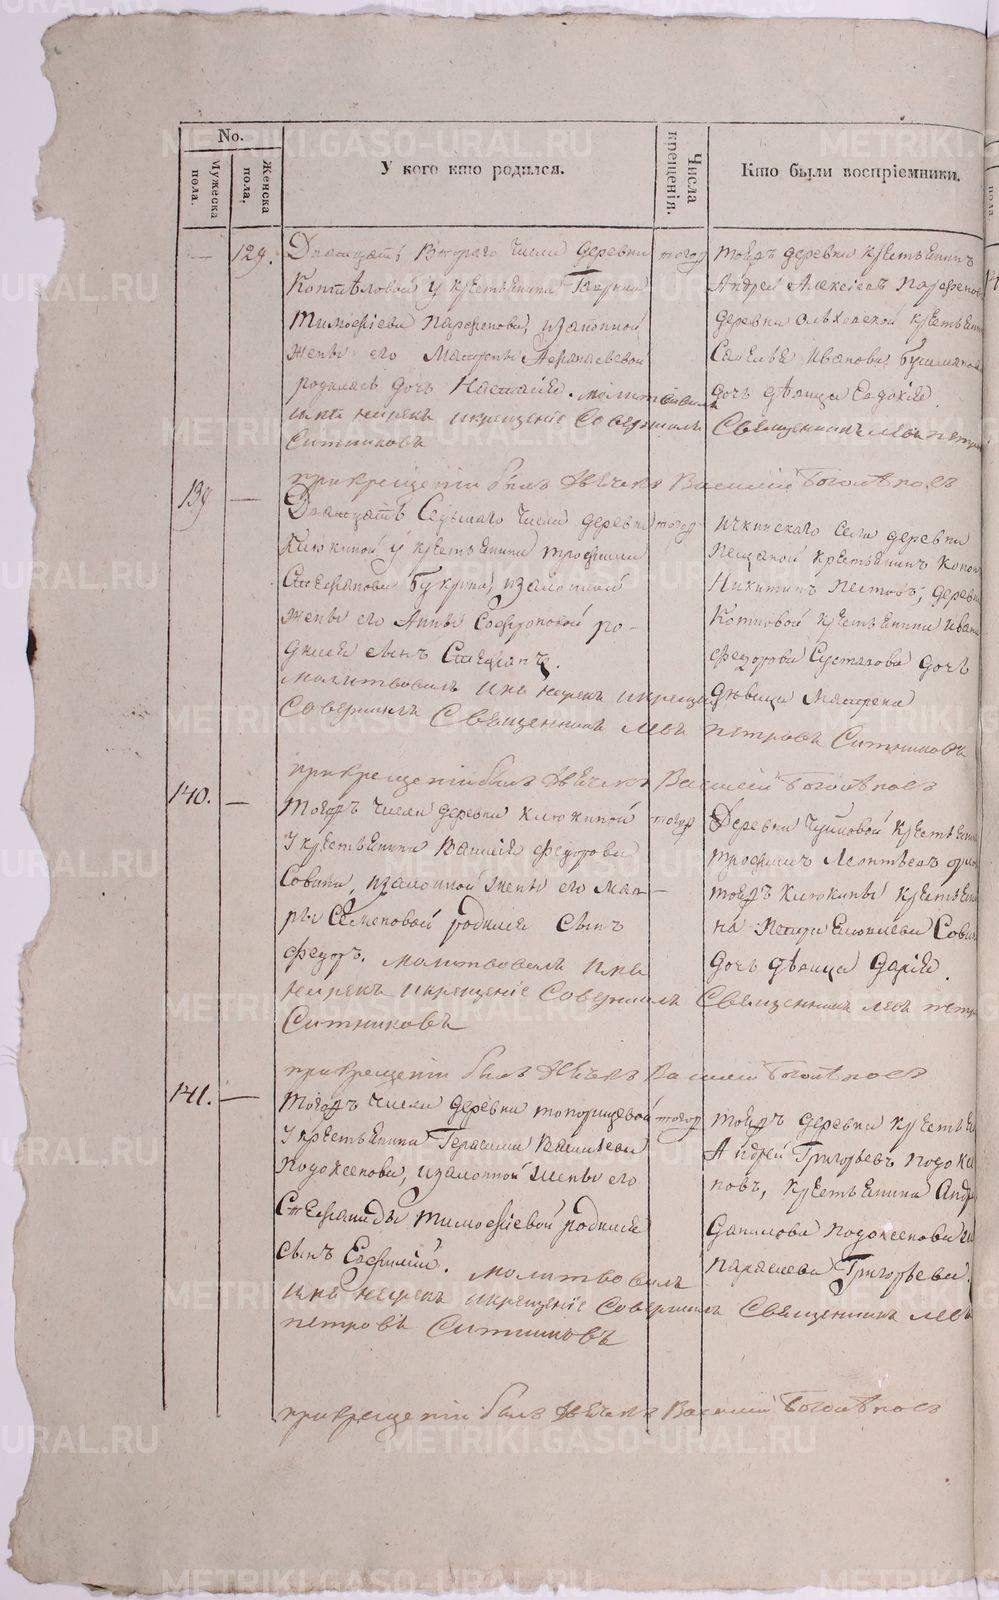 No.
Мужеска пола.
Женска пола,
У кого кто родился.
Числа крещенія.
Кто были воспріемники.
— 129. Двадцать втораго числа деревни
у крестьянина
Тимофеева Парфенова, и законной
жены его Матрены Афанасьевой
родилась дочь Настасия. молитвовалъ
имя нарекъ и крещение совершилъ
Ситниковъ
тогож
тойжъ деревни крестьянинъ
Андрей Алексеевъ Парфенов
деревни крестьянина
Савелья Иванова
дочь девица Евдокия.
Священникъ Левъ Петров
при крещении былъ дьячекъ Василий Боголеповъ
139 —
Двадцать седьмаго числа деревни
Клюкиной у крестьянина Трофима
Стефанова Букрина, и законной
жены его Анны Софроновой ро-
дился сынъ Стефанъ.
молитвовалъ имя нарекъ и крещение
совершилъ Священникъ Левъ Петровъ Ситниковъ
тогож
Ичкинскаго села деревни
Песчаной крестьянинъ Конон
Никитинъ Пестовъ, деревни
Котковой крестьянина Ивана
Федорова Суставова дочь
девица Матрена
при крещении былъ дьячекъ Василий Боголеповъ
140. —
тогожъ числа деревни Клюкиной
у крестьянина Василия Федорова
Совина, и законной жены его Мав-
ры Семеновой родился сынъ
Федоръ. молитвовалъ имя
нарекъ и крещение совершилъ Священникъ Левъ Петров
Ситниковъ
тогож
Деревни крестьянин
Трофимъ Леонтьевъ
тойжъ Клюкины крестьяни
на Совин
дочь девица Дария.
при крещении былъ дьячекъ Василий Боголеповъ
141. —
тогожъ числа деревни Топорищевой
у крестьянина Герасима Васильева
Подоксенова, и законной жены его
Стефаниды Тимофеевой родился
сынъ Евфимий. молитвовалъ
имя нарекъ и крещение совершилъ Священникъ Левъ
Петровъ Ситниковъ
тогож
тойжъ деревни крестьянин
Андрей Григорьевъ Подоксе
новъ, крестьянина Андре
Данилова Подоксенова
Параскева Григорьева.
при крещении былъ дьячекъ Василий Боголеповъ
METRIKI.GASO-URAL.RU